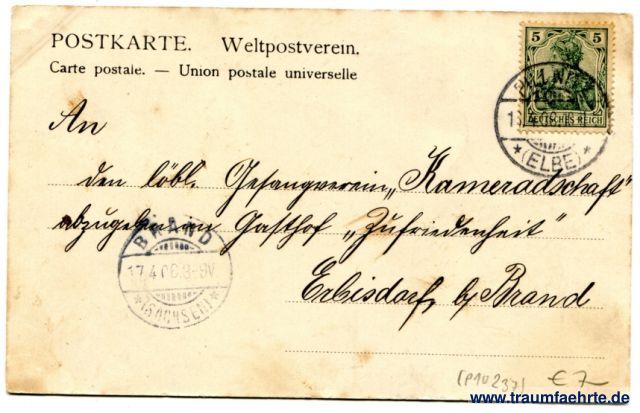 POSTKARTE. Weltpostverein.
Carte postale. — Union postale universelle
5 5
DEUTSCHES REICH
(ELBE)
An
den löbl. Gesangverein „Kameradschaft“
abzugeben im Gasthof „Zufriedenheit“
Erbisdorf, b/ Brand
BRAND
17.4.06.8-9V
(SACHSEN)
(P10237)
€ 7
www.traumfaehrte.de